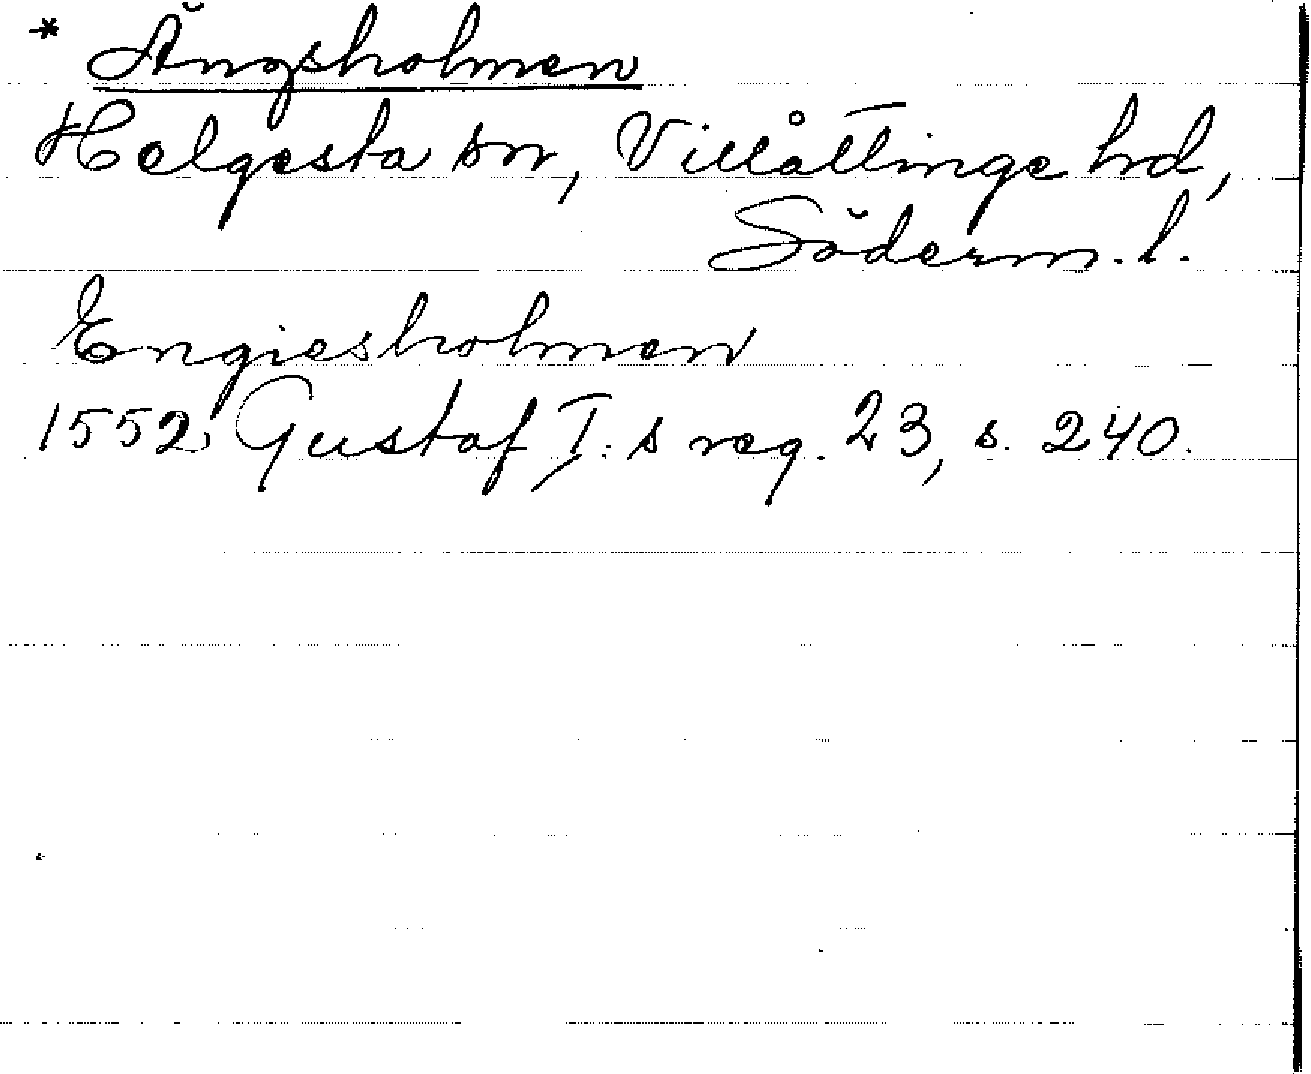 * Ängsholmen
Helgesta sn, Villåttinge hd,
Söderm. l.
Engiesholmen
1552 Gustaf I:s reg. 23, s. 240.